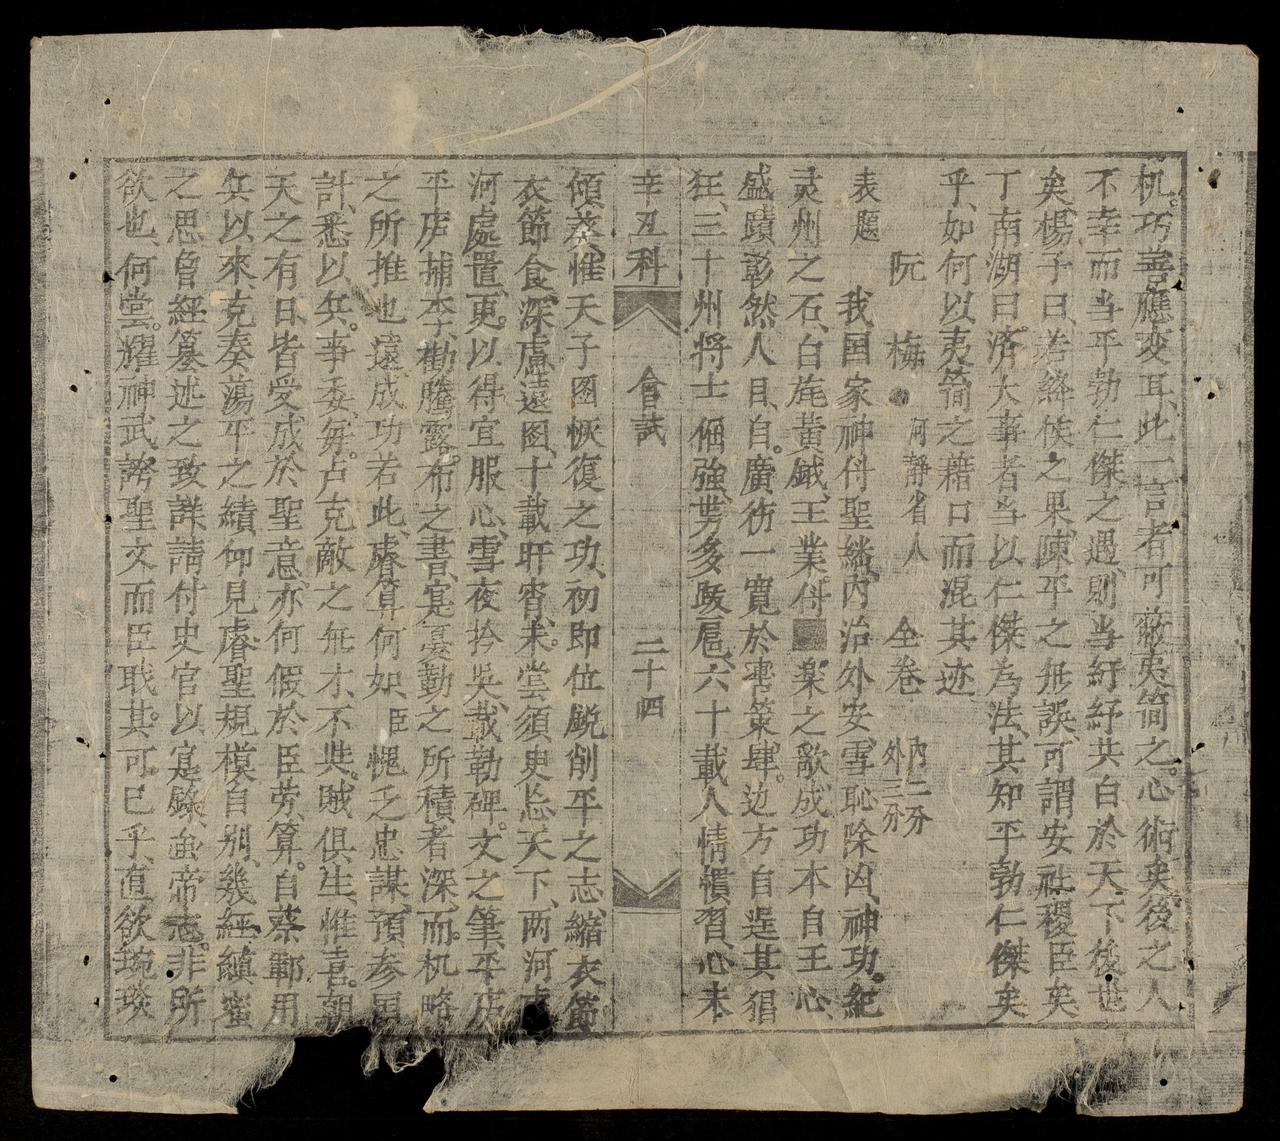 机巧善應变耳、此一言者可蔽夷簡之心術矣、後之人
不幸而当平勃仁傑之遇、則当紓紓共白於天下後世
矣、楊子曰、若絳侯之果、陳平之無誤、可謂安社稷臣矣
丁南湖曰、済大事者当以仁傑為法、其知平勃仁傑矣
乎、如何以夷簡之藉口而混其迹
阮梅 河靜省人 全卷 內二分 外三分
表題
我国家神付聖繙、內治外安、雪恥除凶、神功紀
灵州之石、白旄黃鉞、王業付 楽之歌、成功本自王心、
盛蹟彰然人目、自廣彷一寬於寄策、肆边方自逞其猖
狂、三十州将士倔強、势多跋扈、六十載人情慣習、心未
辛丑科 會試 二十四
傾葵、惟天子図恢復之功、初即位鋭削平之志、縮衣節
衣節食、深慮遠图、十載旰宵、未嘗須臾忘天下、两河虜
河處置、更以得宜服心、雪夜擒吳、載勒碑文之筆、平店
平店捕李、勸騰露布之書、寔憂勤之所積者深、而机略
之所推也遠、成功若此、睿算何如、臣愧乏忠謀、預参国
計、悉以兵事委、毎占克敵之無才、不共賊俱生、惟喜朝
天之有日、皆受成於聖意、亦何假於臣劳算、自蔡鄆用
兵以來、克奏蕩平之績、仰見睿聖規模自别、幾經縝蜜
之思、魯經纂述之致詳、請付史官以寔錄、虽帝志非所
欲也、何尝耀神武誇聖文、而臣职其可已乎、直欲琬琰